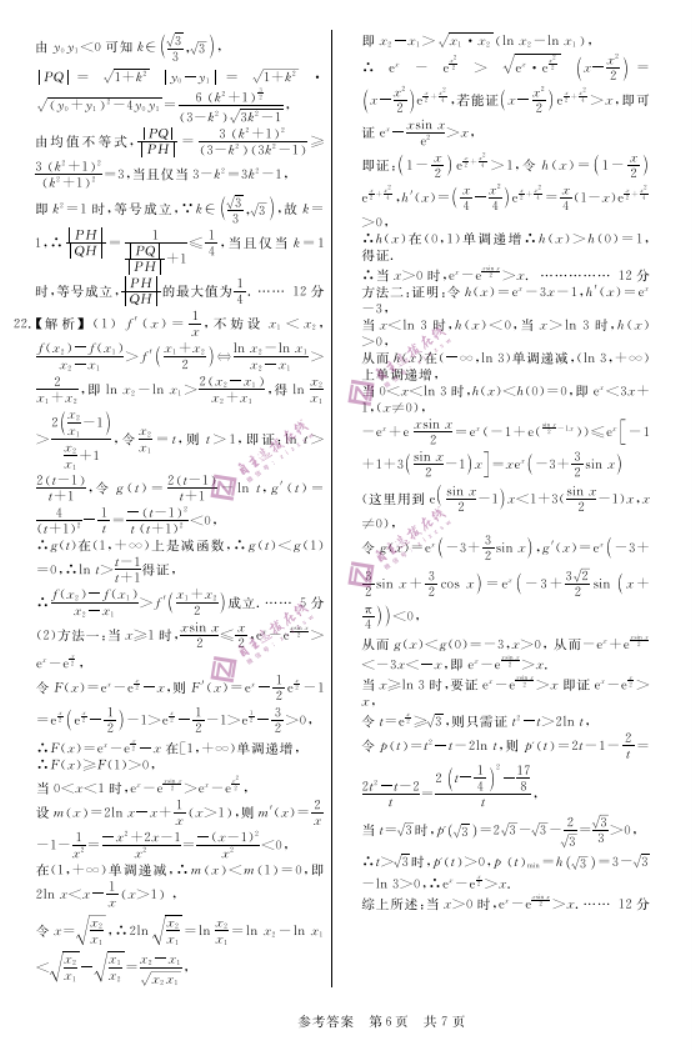 由 y₀y₁<0 可知 k∈(√3/3,√3),
|PQ| = √(1+k²) |y₀-y₁| = √(1+k²) ·
√((y₀+y₁)²-4y₀y₁)=6(k²+1)^(3/2)/((3-k²)√(3k²-1)),
由均值不等式,|PQ|/|PH|=3(k²+1)²/((3-k²)(3k²-1))≥
3(k²+1)²/(k²+1)²=3,当且仅当 3-k²=3k²-1,
即 k²=1 时,等号成立,∵k∈(√3/3,√3),故 k=
1,∴|PH|/|QH|=1/(|PQ|/|PH|+1)≤1/4,当且仅当 k=1
时,等号成立,|PH|/|QH|的最大值为1/4. …… 12 分
22.【解析】(1) f′(x)=1/x,不妨设 x₁<x₂,
(f(x₂)-f(x₁))/(x₂-x₁)>f′((x₁+x₂)/2)⇔(ln x₂-ln x₁)/(x₂-x₁)>
2/(x₁+x₂),即 ln x₂-ln x₁>2(x₂-x₁)/(x₂+x₁),得 ln x₂/x₁
>2(x₂/x₁-1)/(x₂/x₁+1),令x₂/x₁=t,则 t>1,即证:ln t>
2(t-1)/(t+1),令 g(t)=2(t-1)/(t+1)-ln t,g′(t)=
4/(t+1)²-1/t=-(t-1)²/(t(t+1)²)<0,
∴g(t)在(1,+∞)上是减函数,∴g(t)<g(1)
=0,∴ln t>(t-1)/(t+1)得证,
∴(f(x₂)-f(x₁))/(x₂-x₁)>f′((x₁+x₂)/2)成立. …… 5 分
(2)方法一:当 x≥1 时,xsin x/2≤x/2,eˣ-e^(xsin x/2)>
eˣ-e^(x/2),
令 F(x)=eˣ-e^(x/2)-x,则 F′(x)=eˣ-1/2e^(x/2)-1
=e^(x/2)(e^(x/2)-1/2)-1>e^(x/2)-1/2-1>e^(x/2)-3/2>0,
∴F(x)=eˣ-e^(x/2)-x 在[1,+∞)单调递增,
∴F(x)≥F(1)>0,
当 0<x<1 时,eˣ-e^(xsin x/2)>eˣ-e^(x²/2),
设 m(x)=2ln x-x+1/x(x>1),则 m′(x)=2/x
-1-1/x²=(-x²+2x-1)/x²=-(x-1)²/x²<0,
在(1,+∞)单调递减,∴m(x)<m(1)=0,即
2ln x<x-1/x(x>1),
令 x=√(x₂/x₁),∴2ln √(x₂/x₁)=ln x₂/x₁=ln x₂-ln x₁
<√(x₂/x₁)-√(x₁/x₂)=(x₂-x₁)/√(x₂x₁),
即 x₂-x₁>√(x₁·x₂)(ln x₂-ln x₁),
∴ eˣ - e^(x²/2) > √(eˣ·e^(x²/2)) (x-x²/2) =
(x-x²/2)e^(x/2+x²/4),若能证(x-x²/2)e^(x/2+x²/4)>x,即可
证 eˣ-xsin x/e²>x,
即证:(1-x/2)e^(x/2+x²/4)>1,令 h(x)=(1-x/2)
e^(x/2+x²/4),h′(x)=(x/4-x²/4)e^(x/2+x²/4)=x/4(1-x)e^(x/2+x²/4)
>0,
∴h(x)在(0,1)单调递增∴h(x)>h(0)=1,
得证.
∴当 x>0 时,eˣ-e^(xsin x/2)>x. …………… 12 分
方法二:证明:令 h(x)=eˣ-3x-1,h′(x)=eˣ
-3,
当 x<ln 3 时,h(x)<0,当 x>ln 3 时,h(x)
>0,
从而 h(x)在(-∞,ln 3)单调递减,(ln 3,+∞)
上单调递增,
当 0<x<ln 3 时,h(x)<h(0)=0,即 eˣ<3x+
1,(x≠0),
-eˣ+e xsin x/2=eˣ(-1+e(^(sin x/2-1x)))≤eˣ[-1
+1+3(sin x/2-1)x]=xeˣ(-3+3/2sin x)
(这里用到 e(sin x/2-1)x<1+3(sin x/2-1)x,x
≠0),
令 g(x)=eˣ(-3+3/2sin x),g′(x)=eˣ(-3+
3/2sin x+3/2cos x)=eˣ(-3+3√2/2sin(x+
π/4))<0,
从而 g(x)<g(0)=-3,x>0, 从而-eˣ+e^(xsin x/2)
<-3x<-x,即 eˣ-e^(xsin x/2)>x.
当 x≥ln 3 时,要证 eˣ-e^(xsin x/2)>x 即证 eˣ-e^(x/2)>
x,
令 t=e^(x/2)≥√3,则只需证 t²-t>2ln t,
令 p(t)=t²-t-2ln t,则 p′(t)=2t-1-2/t=
(2t²-t-2)/t=(2(t-1/4)²-17/8)/t,
当 t=√3时,p′(√3)=2√3-√3-2/√3=√3/3>0,
∴t>√3时,p′(t)>0,p(t)min=h(√3)=3-√3
-ln 3>0,∴eˣ-e^(x/2)>x.
综上所述:当 x>0 时,eˣ-e^(xsin x/2)>x. …… 12 分
参考答案 第 6 页 共 7 页